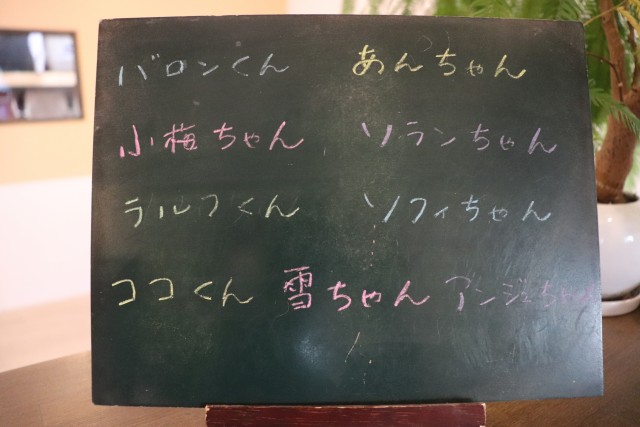 バロンくん あんちゃん
小梅ちゃん ソランちゃん
ラルフくん ソフィちゃん
ココくん 雪ちゃん アンジェちゃん